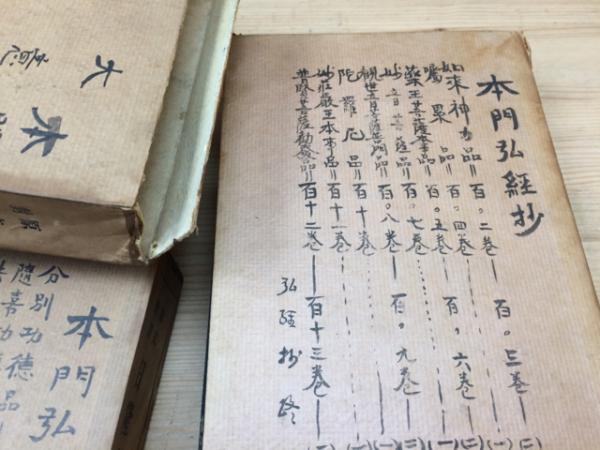 本門弘経抄
如来神力品〃百〇二巻――百〇三巻――
嘱累品〃百〇四巻
薬王菩薩本事品〃百〇五巻――百〇六巻――
妙音菩薩品〃百〇七巻
観世音菩薩普門品〃百〇八巻――百〇九巻――
陀羅尼品〃百十巻
妙荘厳王本事品〃百十一巻
普賢菩薩勧発品〃百十二巻――百十三巻――
弘経抄終
(一)(二)(一)(二)(一)(二)(一)
大
本
本門弘
分別功德品
随喜功